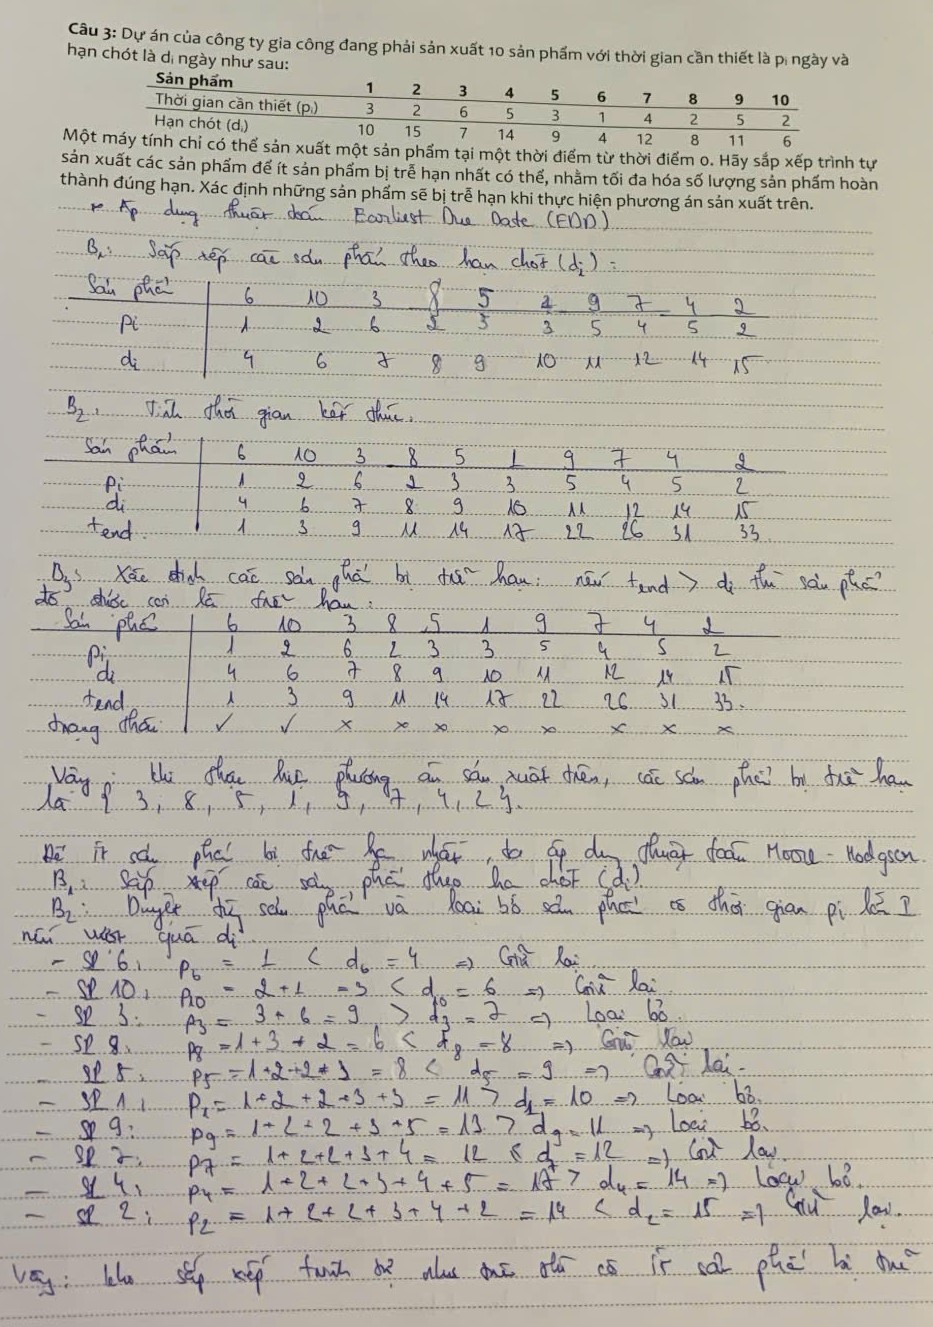 Câu 3: Dự án của công ty gia công đang phải sản xuất 10 sản phẩm với thời gian cần thiết là pᵢ ngày và
hạn chót là dᵢ ngày như sau:
Sản phẩm 1 2 3 4 5 6 7 8 9 10
Thời gian cần thiết (pᵢ) 3 2 6 5 3 1 4 2 5 2
Hạn chót (dᵢ) 10 15 7 14 9 4 12 8 11 6
Một máy tính chỉ có thể sản xuất một sản phẩm tại một thời điểm từ thời điểm 0. Hãy sắp xếp trình tự
sản xuất các sản phẩm để ít sản phẩm bị trễ hạn nhất có thể, nhằm tối đa hóa số lượng sản phẩm hoàn
thành đúng hạn. Xác định những sản phẩm sẽ bị trễ hạn khi thực hiện phương án sản xuất trên.
* Áp dụng thuật toán Earliest Due Date (EDD)
B₁: Sắp xếp các sản phẩm theo hạn chót (dᵢ):
Sản phẩ 6 10 3 8 5 1 9 7 4 2
Pi 1 2 6 2 3 3 5 4 5 2
di 4 6 7 8 9 10 11 12 14 15
B₂: Tính thời gian kết thúc.
Sản phẩm 6 10 3 8 5 1 9 7 4 2
Pi 1 2 6 2 3 3 5 4 5 2
di 4 6 7 8 9 10 11 12 14 15
tend 1 3 9 11 14 17 22 26 31 33
B₃: Xác định các sản phẩ bị trễ hạn: nếu tend > di thì sản phẩ
đó được coi là trễ hạn:
Sản phẩ 6 10 3 8 5 1 9 7 4 2
Pi 1 2 6 2 3 3 5 4 5 2
di 4 6 7 8 9 10 11 12 14 15
tend 1 3 9 11 14 17 22 26 31 33.
trạng thái ✓ ✓ × × × × × × × ×
Vậy: khi thực hiện phương án sản xuất trên, các sản phẩ bị trễ hạn
là { 3, 8, 5, 1, 9, 7, 4, 2 }.
Để ít sản phẩ bị trễ hạ nhất, ta áp dụng thuật toán Moore - Hodgson.
B₁: Sắp xếp các sản phẩ theo hạ chót (dᵢ).
B₂: Duyệt từng sản phẩ và loại bỏ sản phẩ có thời gian pi lớn I
nếu vượt quá di
- SP 6: p₆ = 1 < d₆ = 4 => Giữ lại
- SP 10: p₁₀ = 2+1 = 3 < d₁₀ = 6 => Giữ lại
- SP 3: p₃ = 3 + 6 = 9 > d₃ = 7 => Loại bỏ.
- SP 8: p₈ = 1 + 3 + 2 = 6 < d₈ = 8 => Giữ lại
- SP 5: p₅ = 1+2+2+3 = 8 < d₅ = 9 => Giữ lại.
- SP 1: p₁ = 1+2+2+3+3 = 11 > d₁ = 10 => Loại bỏ.
- SP 9: p₉ = 1+2+2+3+5 = 13 > d₉ = 11 => Loại bỏ.
- SP 7: p₇ = 1+2+2+3+4 = 12 ≤ d = 12 => Giữ lại.
- SP 4: p₄ = 1+2+2+3+4+5 = 17 > d₄ = 14 => Loại bỏ.
- SP 2: p₂ = 1+2+2+3+4+2 = 14 < d₂ = 15 => Giữ lại.
Vậy: khi sắp xếp trình tự như trên thì có ít sản phẩ bị trễ